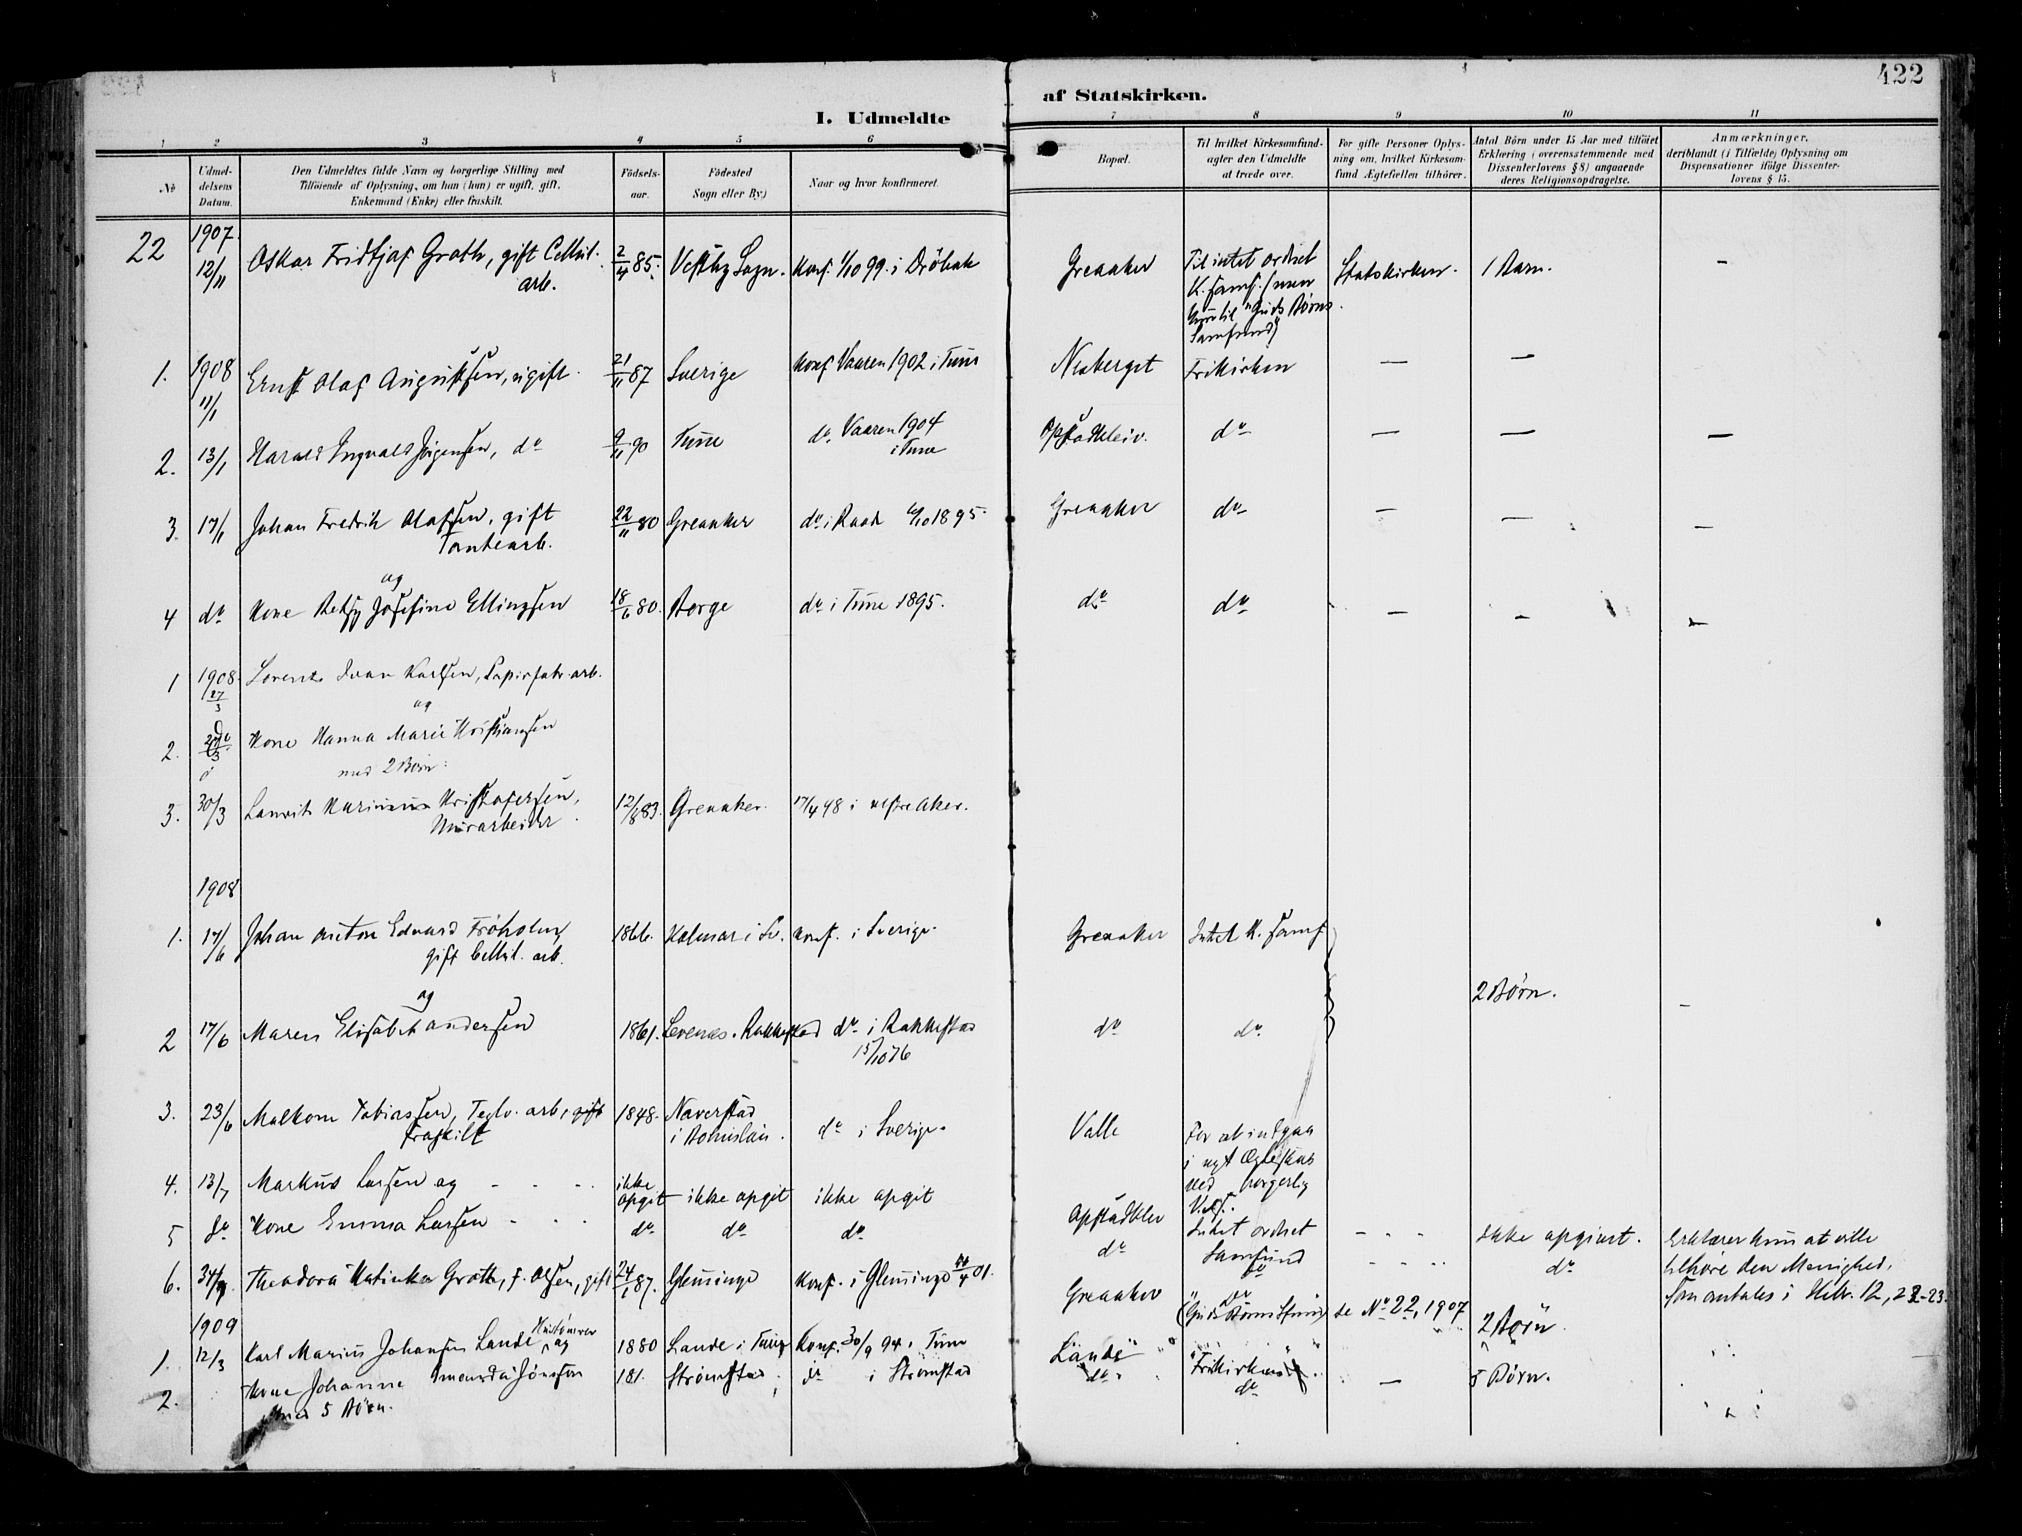 422
I. Udmeldte
af Statskirken.
1 2 3 4 5 6 7 8 9 10 11
№
Udmel-
delsens
Datum.
Den Udmeldtes fulde Navn og borgerlige Stilling med
Tilføiende af Oplysning, om han (hun) er ugift, gift,
Enkemand (Enke) eller fraskilt.
Fødsels-
aar.
Fødested
Sogn eller By.)
Naar og hvor konfirmeret.
Bopæl.
Til hvilket Kirkesamfund
agter den Udmeldte
at træde over.
For gifte Personer Oplys-
ning om, hvilket Kirkesam-
fund Ægtefællen tilhører.
Antal Børn under 15 Aar med tilføiet
Erklæring (overensstemmende med
Dissenterlovens § 8) angaaende
deres Religionsopdragelse.
Anmærkninger,
deriblandt (i Tilfælde) Oplysning om
Dispensationer ifølge Dissenter-
lovens § 15.
22 1907 12/11 Oskar Fridtjof Groth, gift Cellul.
arb.
2/4 85. Vestby Sogn. Konf. 1/10 99. i Drøbak
Greaaker
Til intet ordnet
K. samf. (men
til "Guds Børns
Samfund)
Statskirken. 1 Barn. –
1. 1908 11/1 Ernst Olaf Augustsen, ugift. 21/11 87 Sverige Konf Vaaren 1902 i Tune
Frikirken — —
2. 13/1 Harald Ingvald Jørgensen, do 9/11 90 Tune do. Vaaren 1904
i Tune
do — — —
3. 17/1 Johan Fredrik Olafsen, gift
Tomtearb.
22/11 80 Greaaker do i Raade 1895. Greaaker do — — —
og
4 do Kone Betsy Josefine Ellingsen 18/6 80. Borge do i Tune 1895. do do — — —
1 1908 27/3 Lorentz Ivar Karlsen, Papirfabr. arb.
og
2. Kone Hanna Marie Kristiansen
med 2 Børn.
3. 30/3 Laurits Marinius Kristofersen,
Murarbeider.
12/8 83. Greaaker. 17/4 98 i vestre Aker.
1908
1. 17/6 Johan Anton Edvard Frøholm,
gift Cellul. arb.
1866. Kalmar i Sv. Konf. i Sverige. Greaaker Intet K. samf
og
2 Børn. –
2 17/6 Maren Elisabet Andersen 1861. Rakkestad do i Rakkestad
15/10 76
do do.
3. 23/6 Malkom Tobiassen, Teglv. arb. gift
fraskilt
1848. Naverstad
i Bohuslän.
do i Sverige. Valle
For at indgaa
i nyt Ægteskab
ved borgerlig
4. 13/7 Markus Larsen og - - - ikke
opgit ikke opgit ikke opgit
Intet ordnet
Samfund
Ikke opgivet.
5 do Kone Emma Larsen - - - do do do
do do
Erklærer kun at ville
tilhøre den Menighed,
som omtales i Hebr. 12, 22-23.
6. Theodora Katinka Groth, f. Olsen, gift 24/1 87. Glemminge Konf. i Glemminge 01.
Greaaker (Guds Børns Samf.) se No 22, 1907 2 Børn
1909
1. 12/3 Karl Marius Johansen Lande og 1880 Lande i Tune Konf. 30/9 94 i Tune
Lande Frikirken
2. Kone Johanne Amanda Jönsson 181. Strømstad do i Strømstad
med 5 Børn.
do do — 5 Børn.